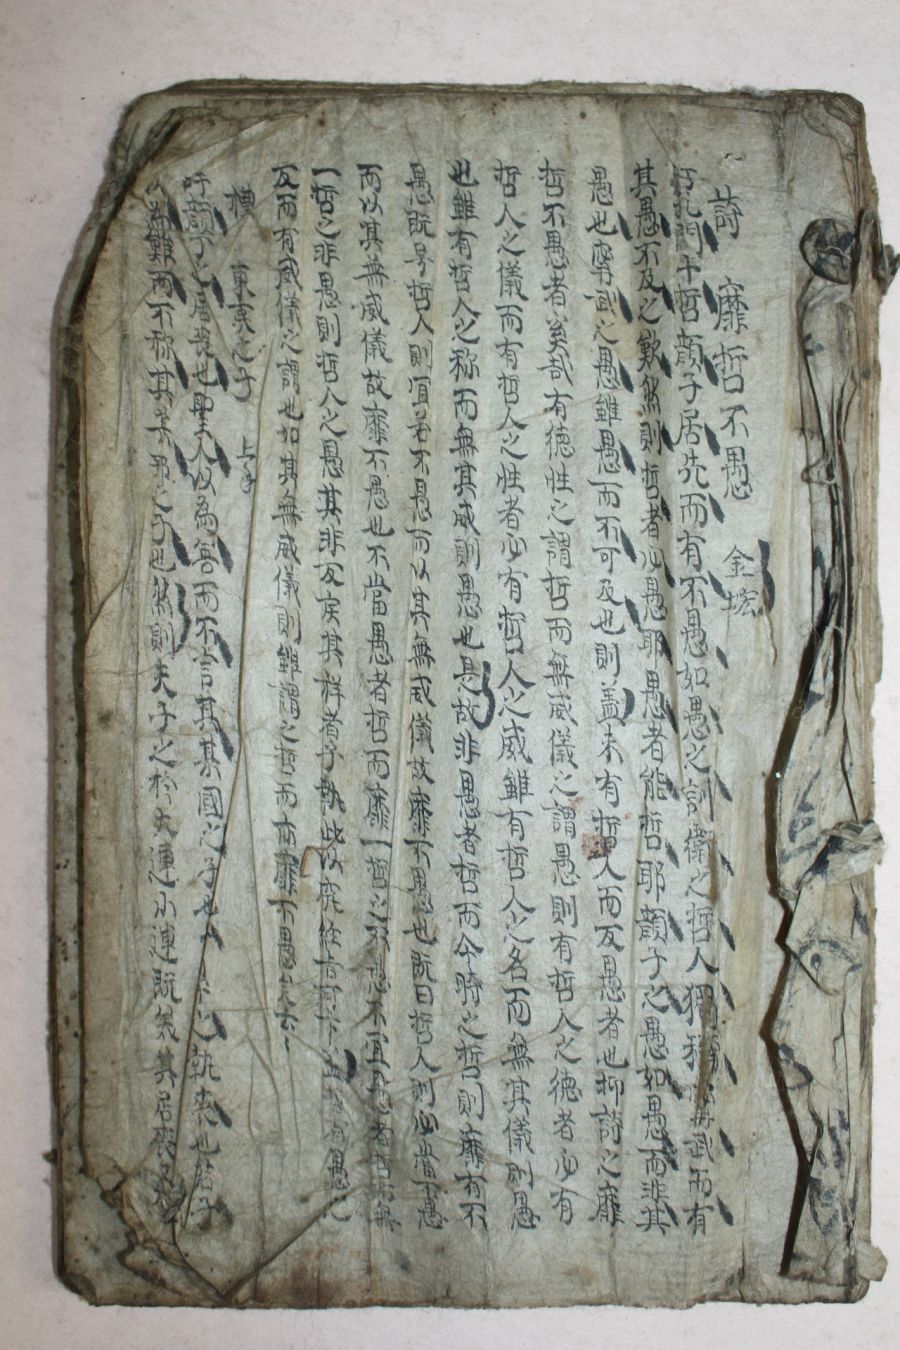 詩 靡哲不愚 金坡
孔門十哲顔子居先而有不愚如愚之訓衛之哲人獨稱武而有
其愚不及之歎然則哲者必愚耶愚者能哲耶顔子之愚如愚而非其
愚也甯武之愚雖愚而不可及也則盖未有哲人而反愚者也抑詩之靡
哲不愚者奚哉有德性之謂哲而無威儀之謂愚則有哲人之德者必有
哲人之儀而有哲人之性者必有哲人之威雖有哲人之名而無其儀則愚
也雖有哲人之称而無其威則愚也是故非愚者哲而今時之哲則靡有不
愚既号哲人則宜若不愚而以其無威儀故靡不愚也既曰哲人則必當不愚
而以其無威儀故靡不愚也不當愚者哲而靡一哲之不愚不宜愚者哲而無
一哲之非愚則哲人之愚其非反戾其祥者乎執此以
反而有威儀之謂也如其無威儀則雖謂之哲而亦靡不愚
禮 東夷之子 上手
吁顔丁之居喪也聖人以爲善而不言其某國之子也 執喪也君子
爲難而不称其某邦之子也然則夫子之於大連小連既美其居喪